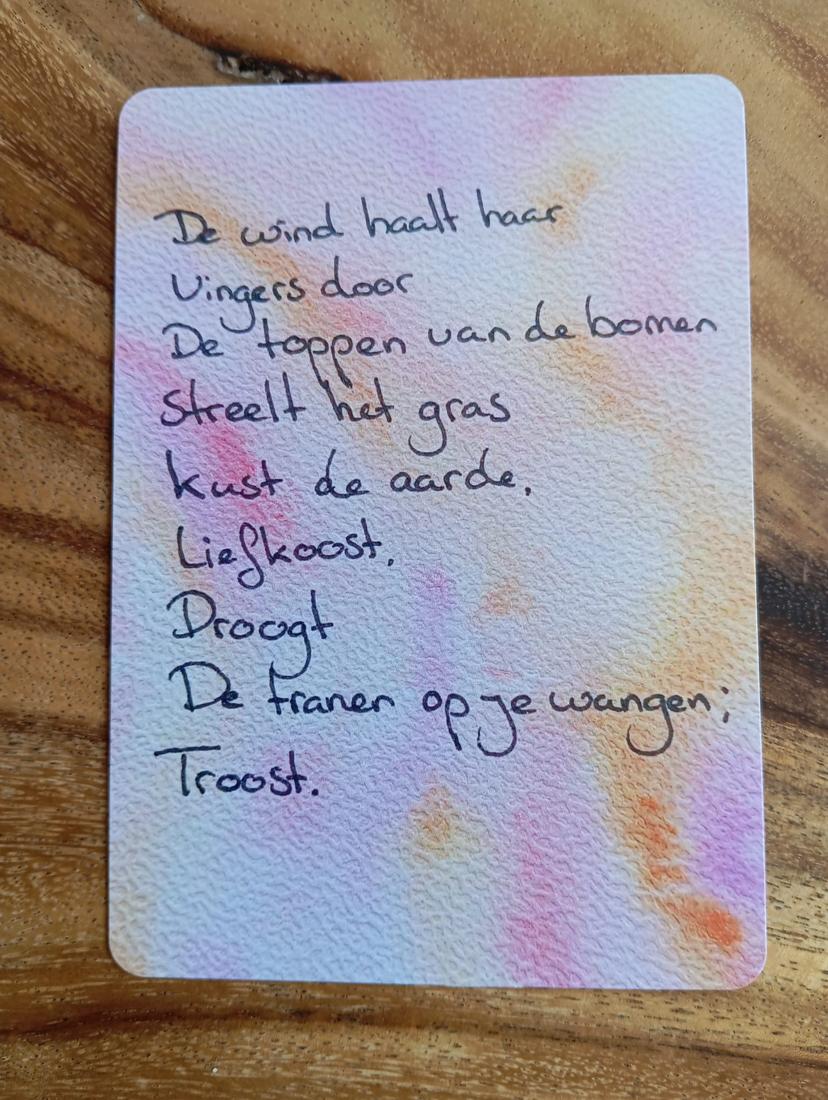 De wind haalt haar
Vingers door
De toppen van de bomen
Streelt het gras
kust de aarde.
Liefkoost.
Droogt
De tranen op je wangen;
Troost.